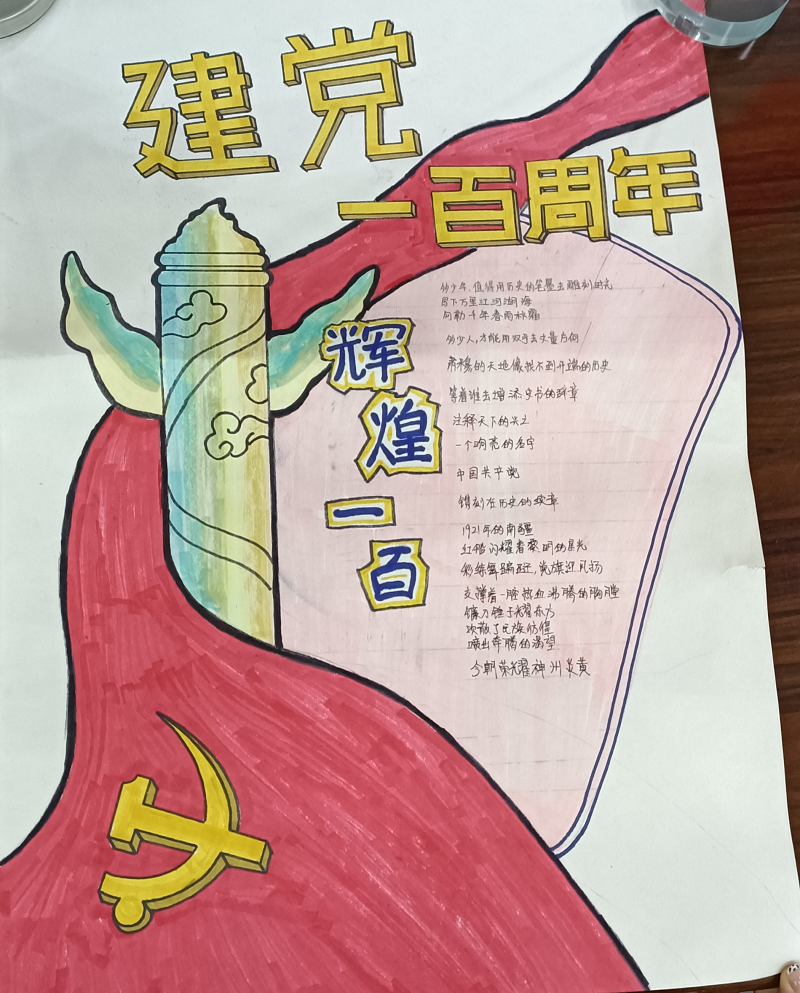 建党
一百周年
辉
煌
一
百
幼少年,值得用历史的笔墨去雕刻时光
目下万里江河湖海
勾勒千年春雨秋霜
幼少人,才能用双手去丈量方向
肃穆的天地像找不到开端的历史
等着谁去增添史书的辞章
注释天下的兴亡
一个响亮的名字
中国共产党
镌刻在历史的续章
1921年的南疆
红船闪耀着黎明的星光
彩练舞蹁跹,党旗迎风扬
支撑着一腔热血沸腾的胸膛
镰刀锤子耀东方
吹散了民族彷徨
喷出奔腾的渴望
今朝荣耀神州炎黄